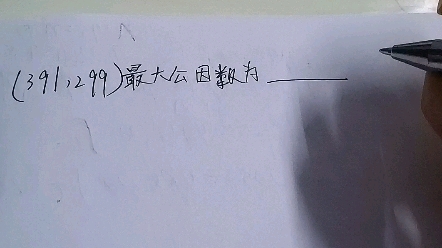 (391,299)最大公因数为______